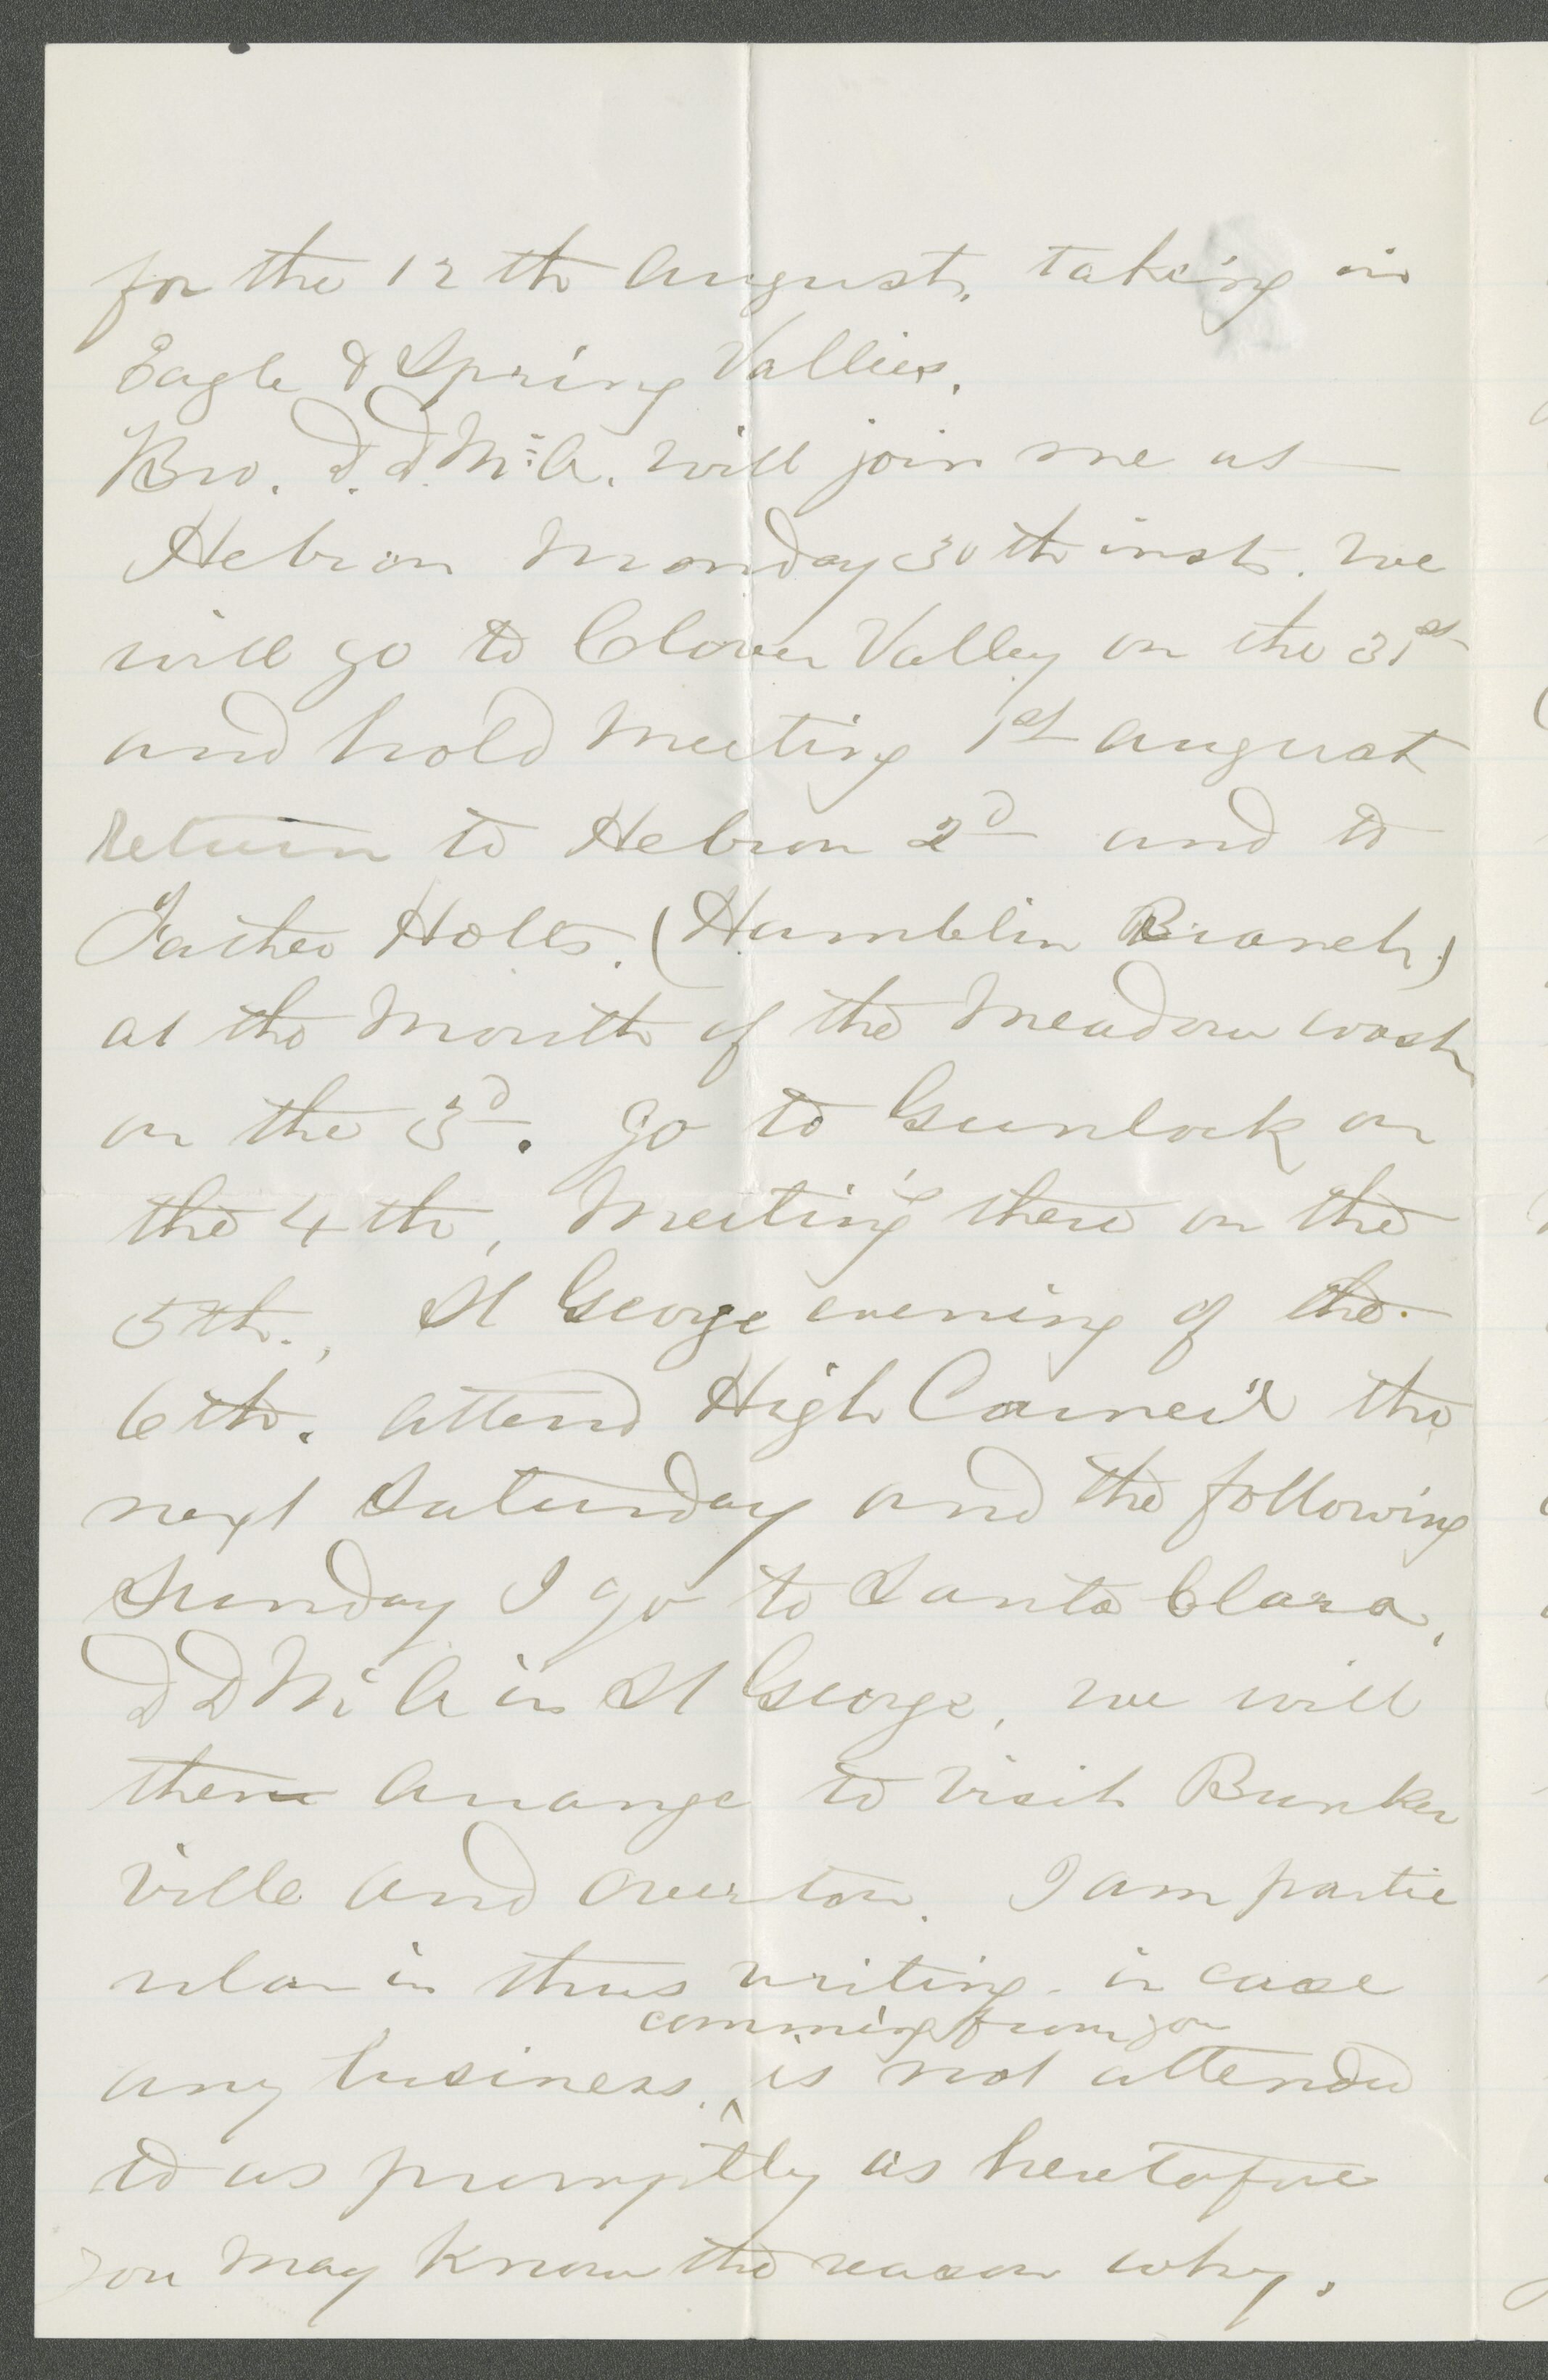 for the 12th August, taking in
Eagle & Spring Vallies.
Bro. D. D. McA. will join me at
Hebron Monday 30th inst. we
will go to Clover Valley on the 31st
and hold Meeting 1st August
Return to Hebron 2d and to
Father Holts. (Hamblin Branch)
at the Mouth of the Meadow wash
on the 3d. go to Gunlock on
the 4th, Meeting there on the
5th., St George evening of the
6th. attend High Council the
next Saturday and the following
Sunday I go to Santa Clara,
D D McA in St George, we will
then arrange to visit Bunker
ville and Overton. I am partic
ular in thus writing. in case
comming from you
any business, ^ is not attended
to as promptly as heretofore
you may know the reason why.